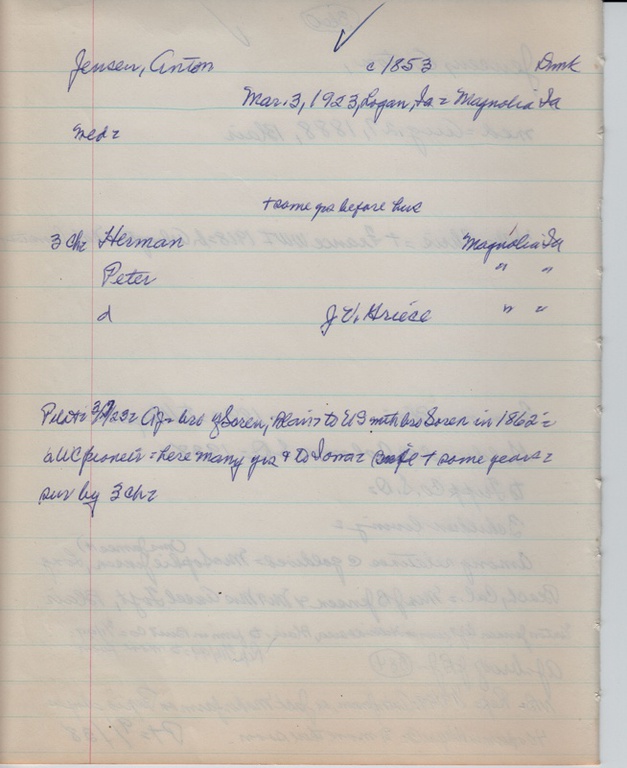 Jensen, Anton c1853 Dmk
Mar. 3, 1923, Logan, Ia = Magnolia Ia
med=
+ some yrs before hus
3 ch= Herman Magnolia Ia
Peter " "
d J.V. Griece " "
Pilot= 3/7/23= AJ= bro of Soren, Blair> to US with bro Soren in 1862=
a WC pioneer = here many yrs & to Iowa= wife + some years=
sur by 3 ch=